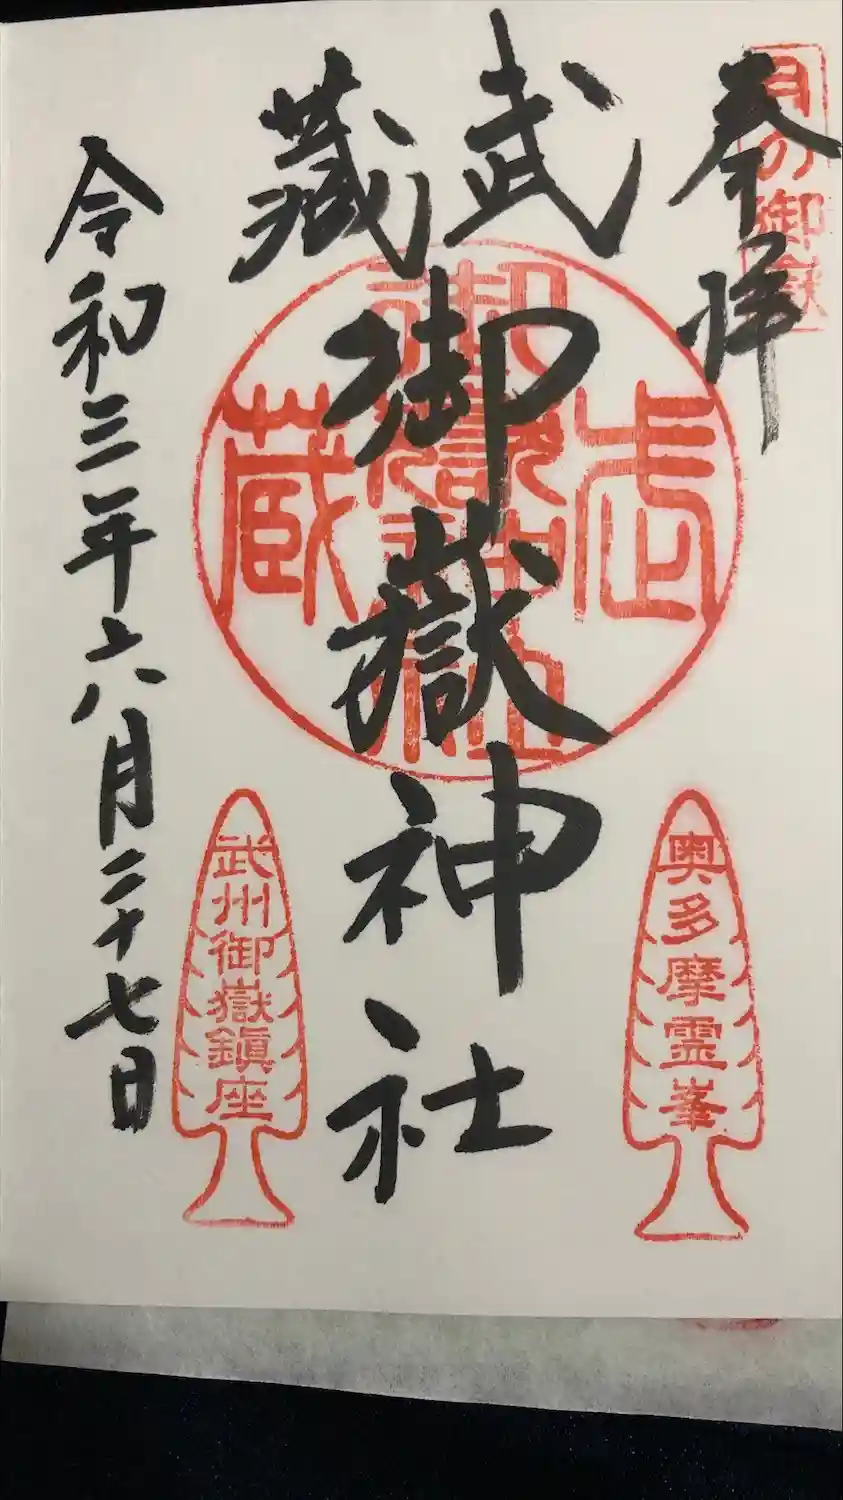 奉拝
月の御嶽
武蔵
御嶽神社
武蔵
御嶽神社
奥多摩霊峯
武州御嶽鎮座
令和三年六月二十七日